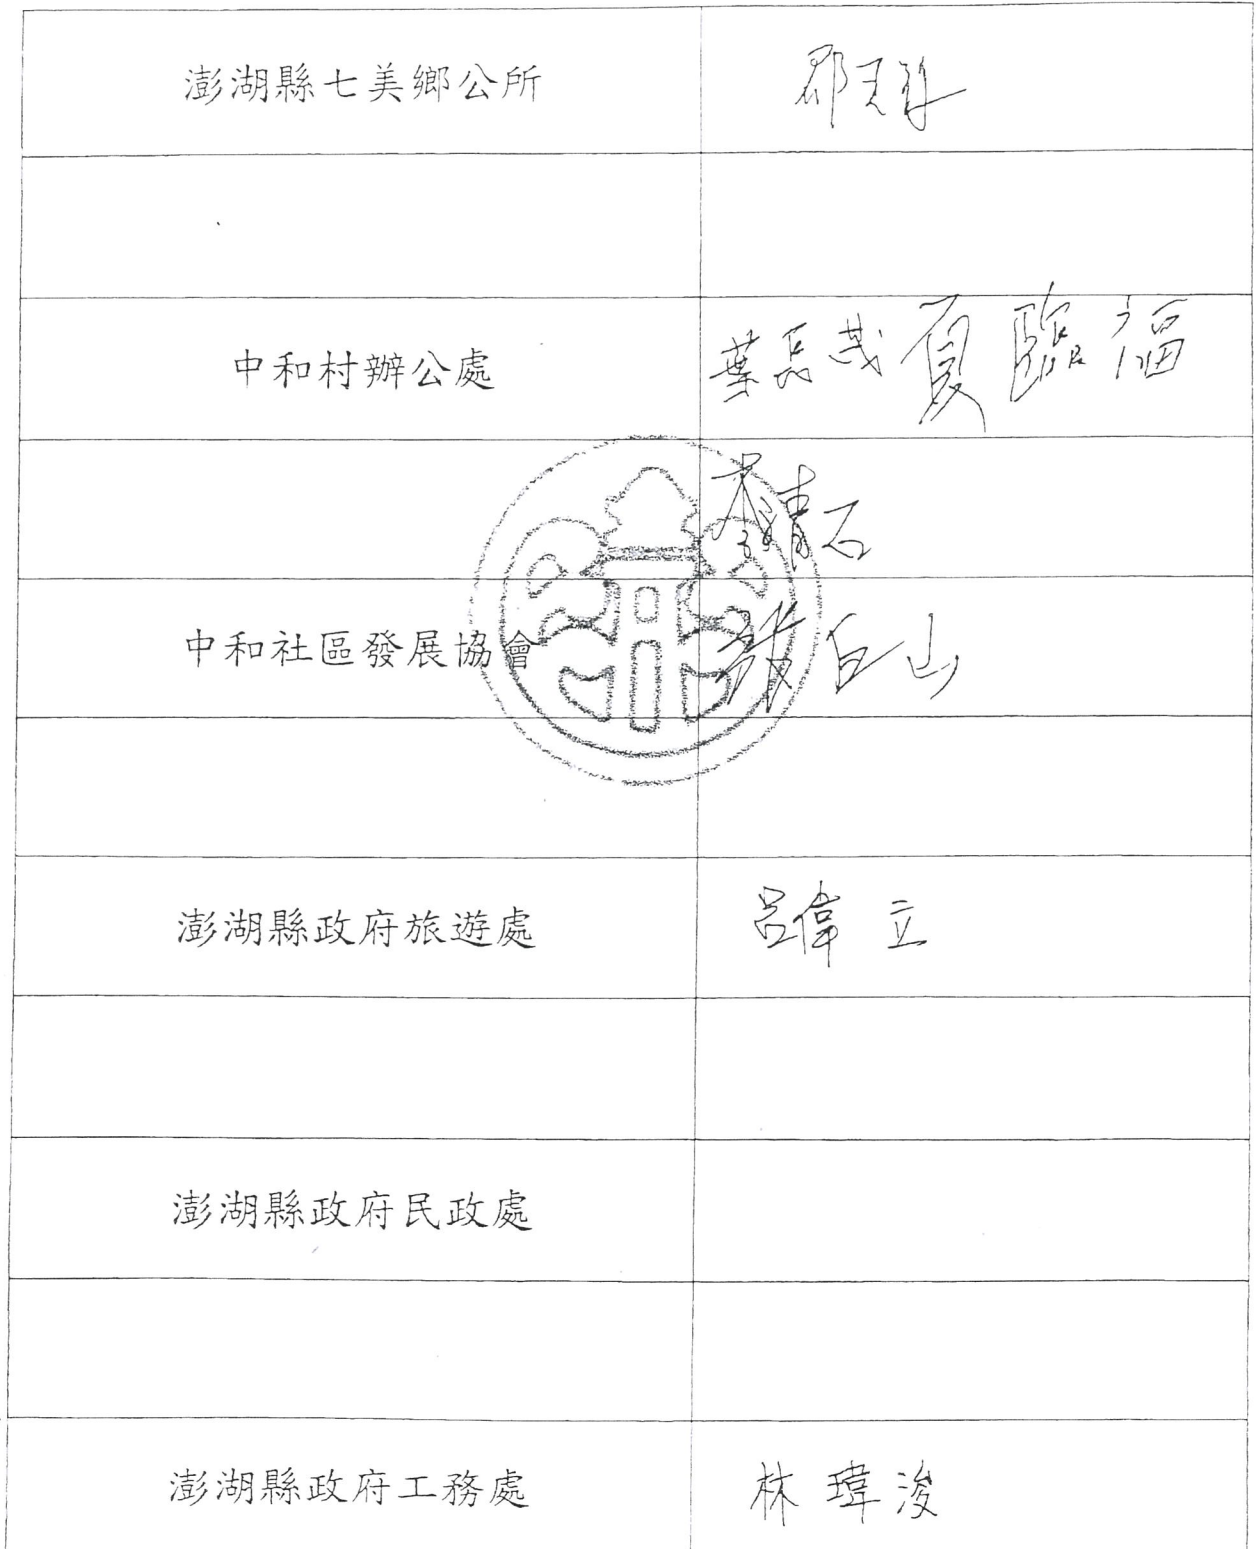 澎湖縣七美鄉公所
中和村辦公處 葉長茂 夏臨福
李清石
中和社區發展協會 張白山
澎湖縣政府旅遊處 呂偉立
澎湖縣政府民政處
澎湖縣政府工務處 林瑋浚